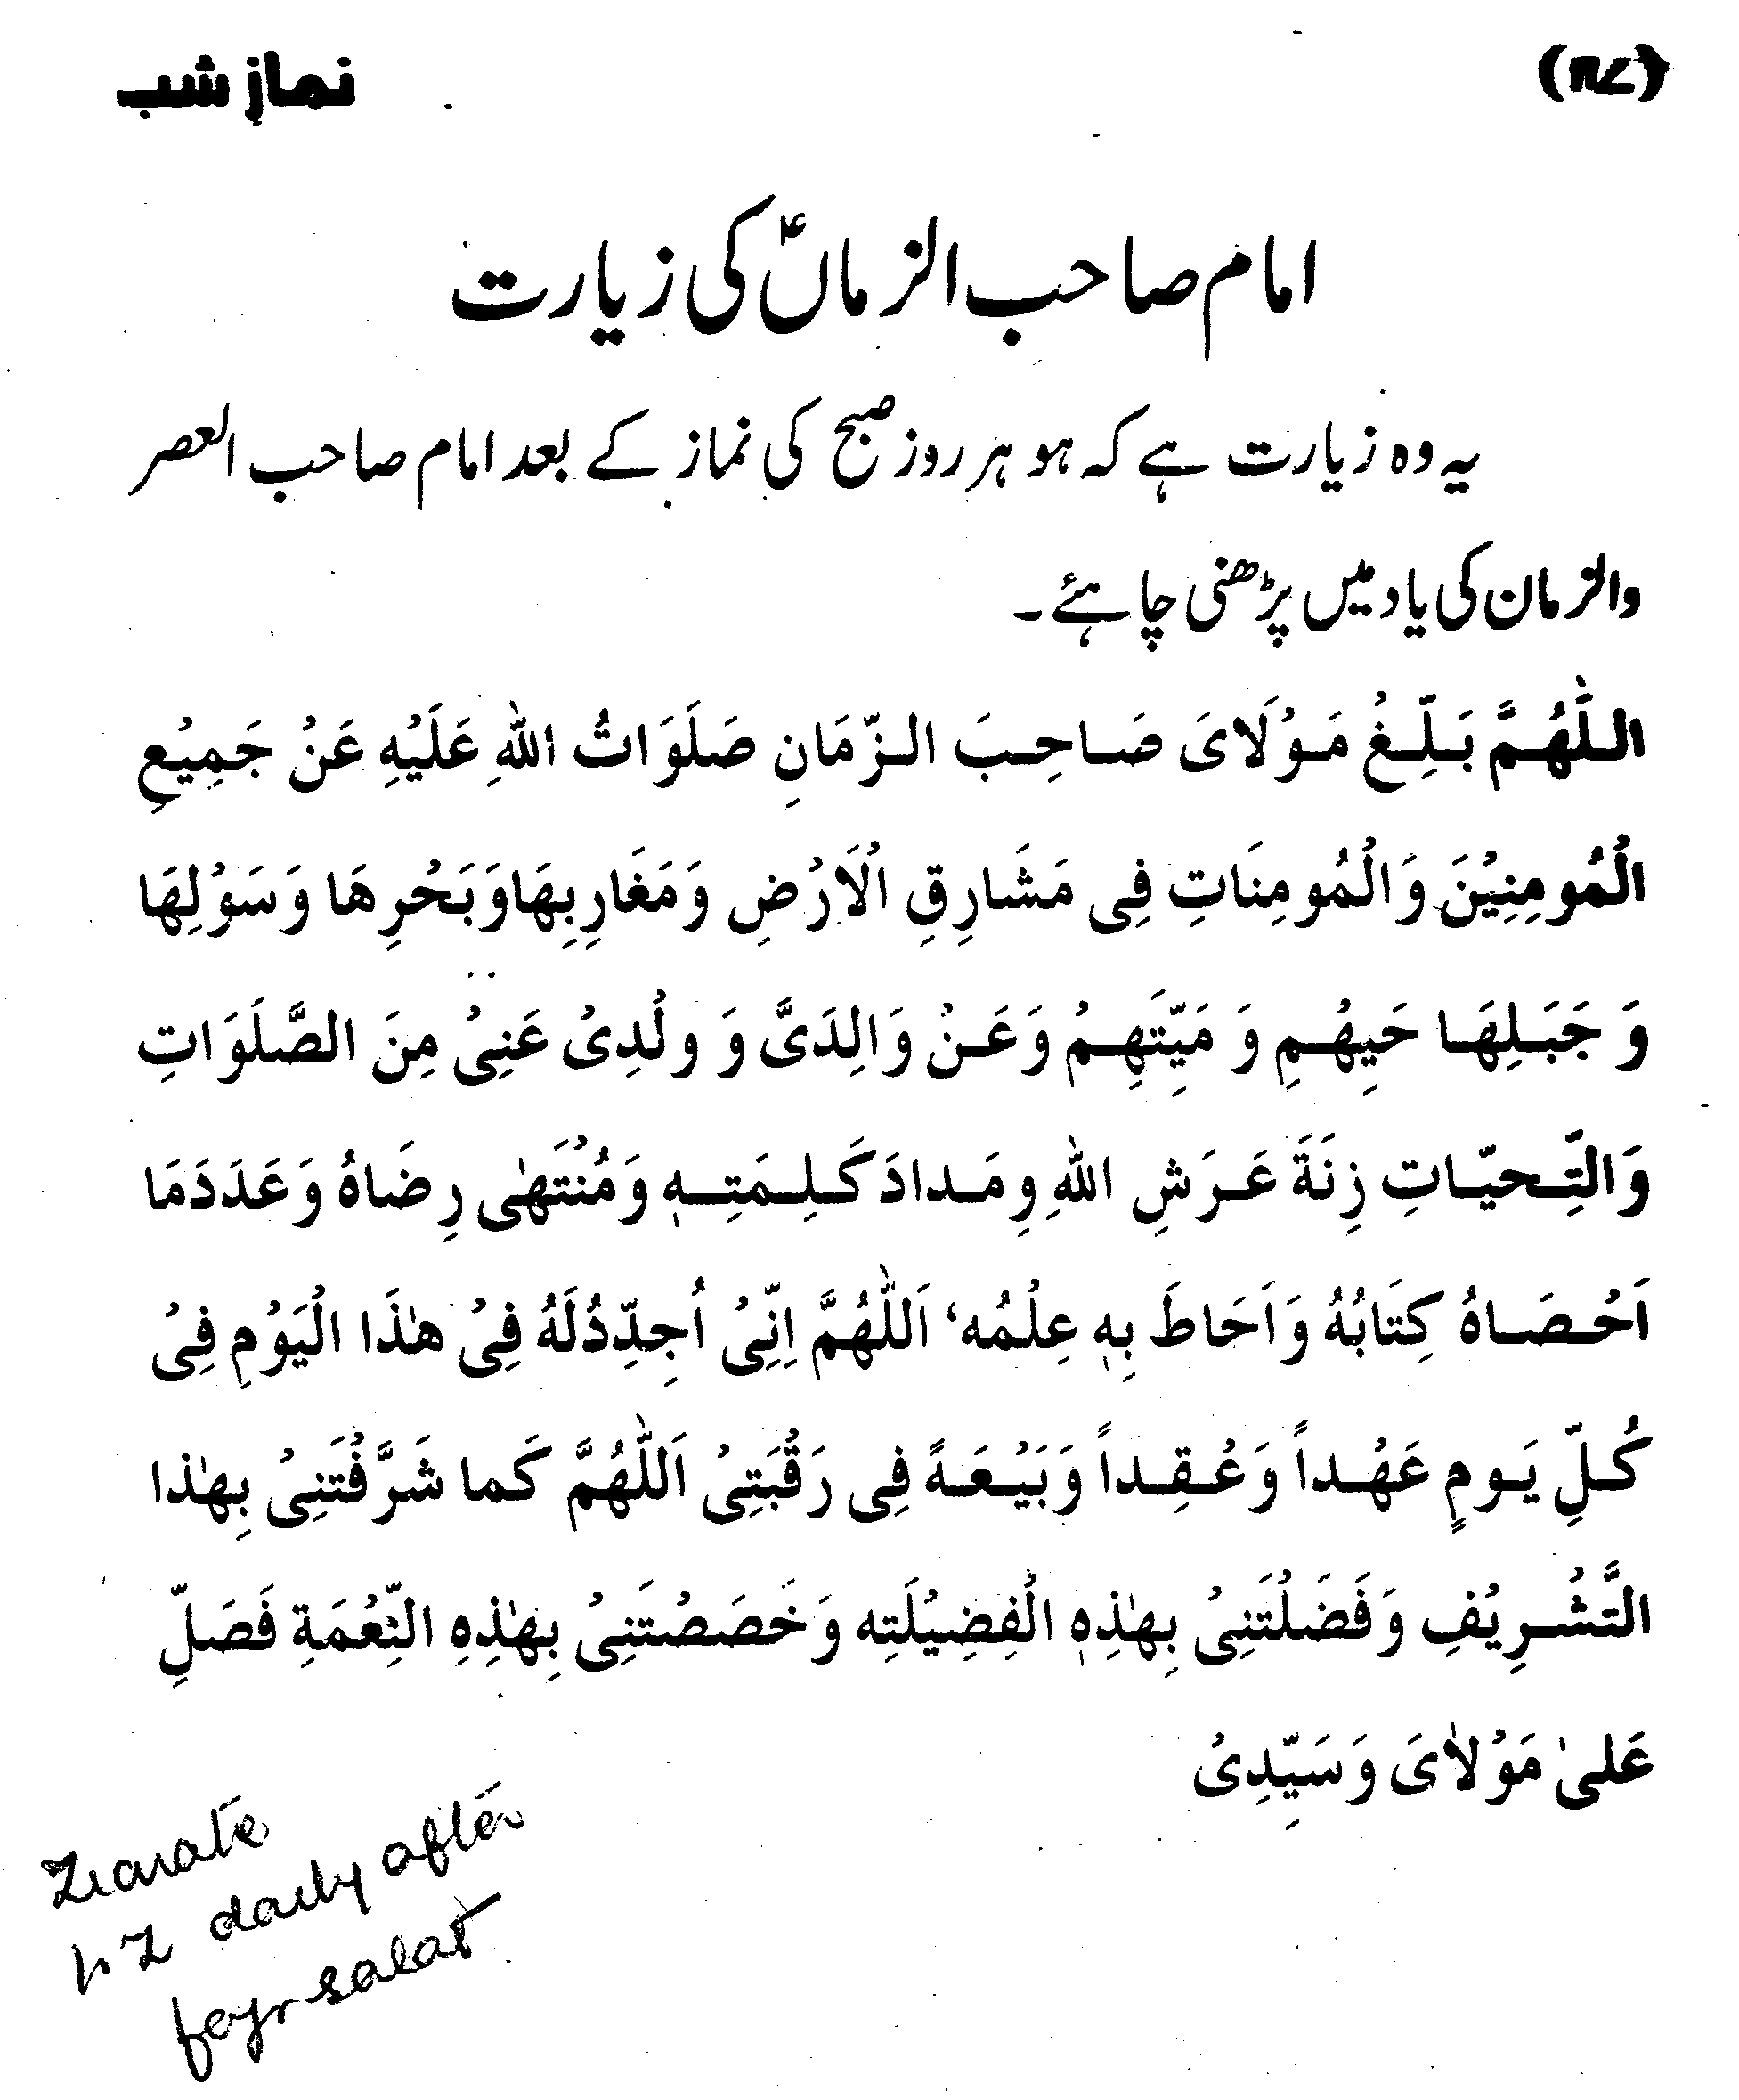 نمازِ شب
امام صاحب الزماںؑ کی زیارت
یہ وہ زیارت ہے کہ ہو ہر روز صبح کی نماز کے بعد امام صاحب العصر
والزمان کی یاد میں پڑھنی چاہئے۔
اللّٰهُمَّ بَلِّغْ مَوْلَایَ صَاحِبَ الزّمَانِ صَلَوَاتُ اللّٰهِ عَلَيْهِ عَنْ جَمِيْعِ
الْمُومِنِيْنَ وَالْمُومِنَاتِ فِی مَشَارِقِ الْاَرْضِ وَمَغَارِبِهَاوَبَحْرِهَا وَسَوْلِهَا
وَ جَبَلِهَا حَيِهُمِ وَ مَيِّتَهِمْ وَعَنْ وَالِدَیَّ وَ ولْدِیْ عَنِیْ مِنَ الصَّلَوَاتِ
وَالتِّحيّاتِ زِنَةَ عَرَشِ اللّٰهِ وِمَدادَ کَلِمَتِهٖ وَمُنْتَهٰی رِضَاهُ وَعَدَدَمَا
اَحْصَاهُ کِتَابُهُ وَاَحَاطَ بِهٖ عِلْمُه‘ اَللّٰهُمَّ اِنِّیْ اُجِدِّدُلَهُ فِیْ هٰذَا الْيَوْمِ فِیْ
کُلِّ يَومٍ عَهْداً وَعُقِداً وَبَيْعَةً فِی رَقْبَتِیْ اَللّٰهُمَّ کَما شَرَّفْتَنِیْ بِهٰذا
التَّشْرِيْفِ وَفَضَلْتَنِیْ بِهٰذِهٖ الْفِضِيْلَتِه وَخَصَصْتَنِیْ بِهٰذِهِ النِّعْمَةِ فَصَلِّ
عَلیٰ مَوْلاٰیَ وَسَيِّدِیْ
Ziarate
daily after
fajr salat